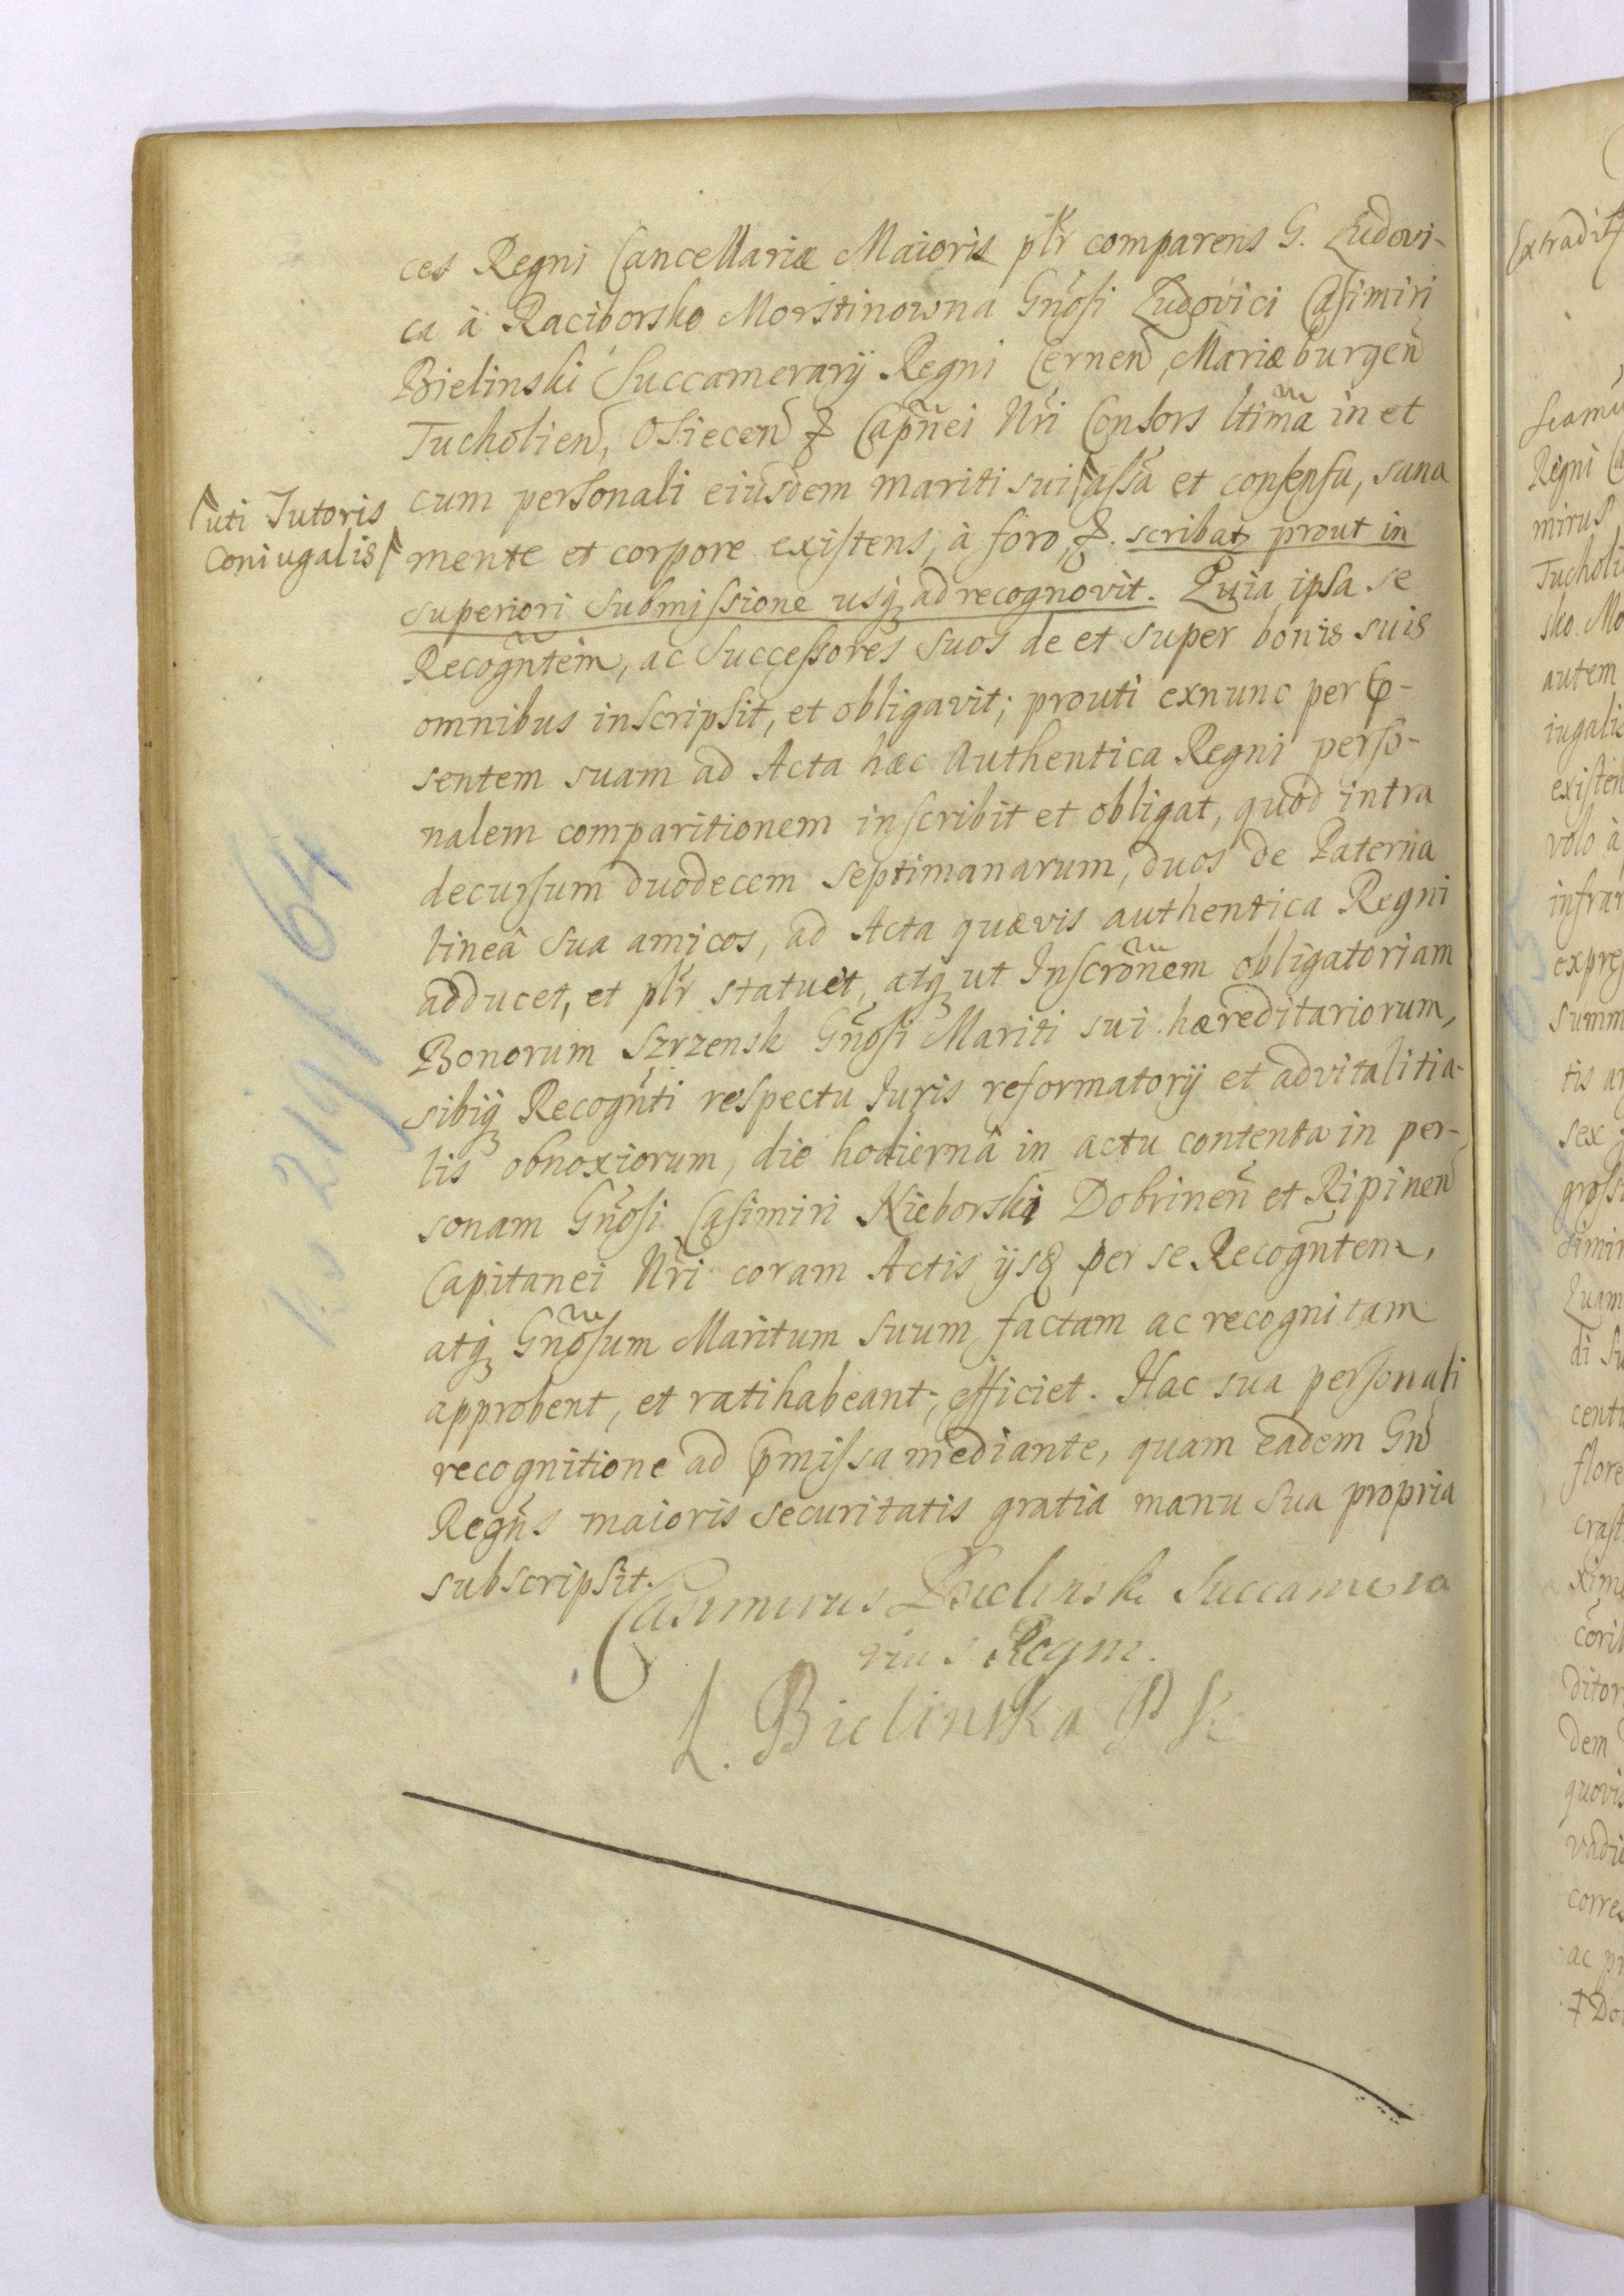 ces Regni Cancellariæ Maioris pl̃r comparens G. Ludovi-
ca à Raciborsko Morstinowna Gñosi Ludovici Casimiri
Bielinski Succamerarÿ Regni Cernen̄, Mariæburgen̄
Tucholien̄, Osiecen̄ & Capñei Nr̃i Consors ltim̃a in et
cum personali eiusdem mariti sui assã et consensu, sana
uti Tutoris
Coniugalis
mente et corpore existens, à foro, &. scribat prout in
superiori submissione usq̨ ad recognovit. Quia ipsa se
Recogñtem, ac Successores suos de et super bonis suis
omnibus inscripsit, et obligavit; prouti exnunc per p̄-
sentem suam ad Acta hæc Authentica Regni perso-
nalem comparitionem inscribit et obligat, quod intra
decursum duodecem septimanarum, duos de Paterna
lineâ sua amicos, ad Acta quævis authentica Regni
adducet, et pl̃r statuet, atq̨ ut Inscrõnem obligatoriam
Bonorum Szrzensk Gñosi Mariti sui hæreditariorum,
sibiq̨ Recogñti respectu Iuris reformatorÿ et advitalitia-
lis obnoxiorum, die hodiernâ in actu contenta in per-
sonam Gñosi Casimiri Nieborski Dobrineñ et Ripinen̄
Capitanei Nr̃i coram Actis ÿsđ per se Recogñtem,
atq̨ Gñosum Maritum suum factam ac recognitam
approbent, et ratihabeant, efficiet. Hac sua personali
recognitione ad p̄missa mediante, quam eadem Gn̄
Regñs maioris securitatis gratia manu sua propria
subscripsit.
Casimirus Bielinski Succamera
rius Regni.
L. Bielinska P K
219 64
Extradit
Regni Ca
mirus
Tucholi
sko. Mo
autem
iugalis
existen
volo à
infra
expres
summ
tis a
sex
gross
simir
Quam
di su
centu
flore
crast
xime
corib
ditor
dem
quovis
vadi
corres
ac pr
Do